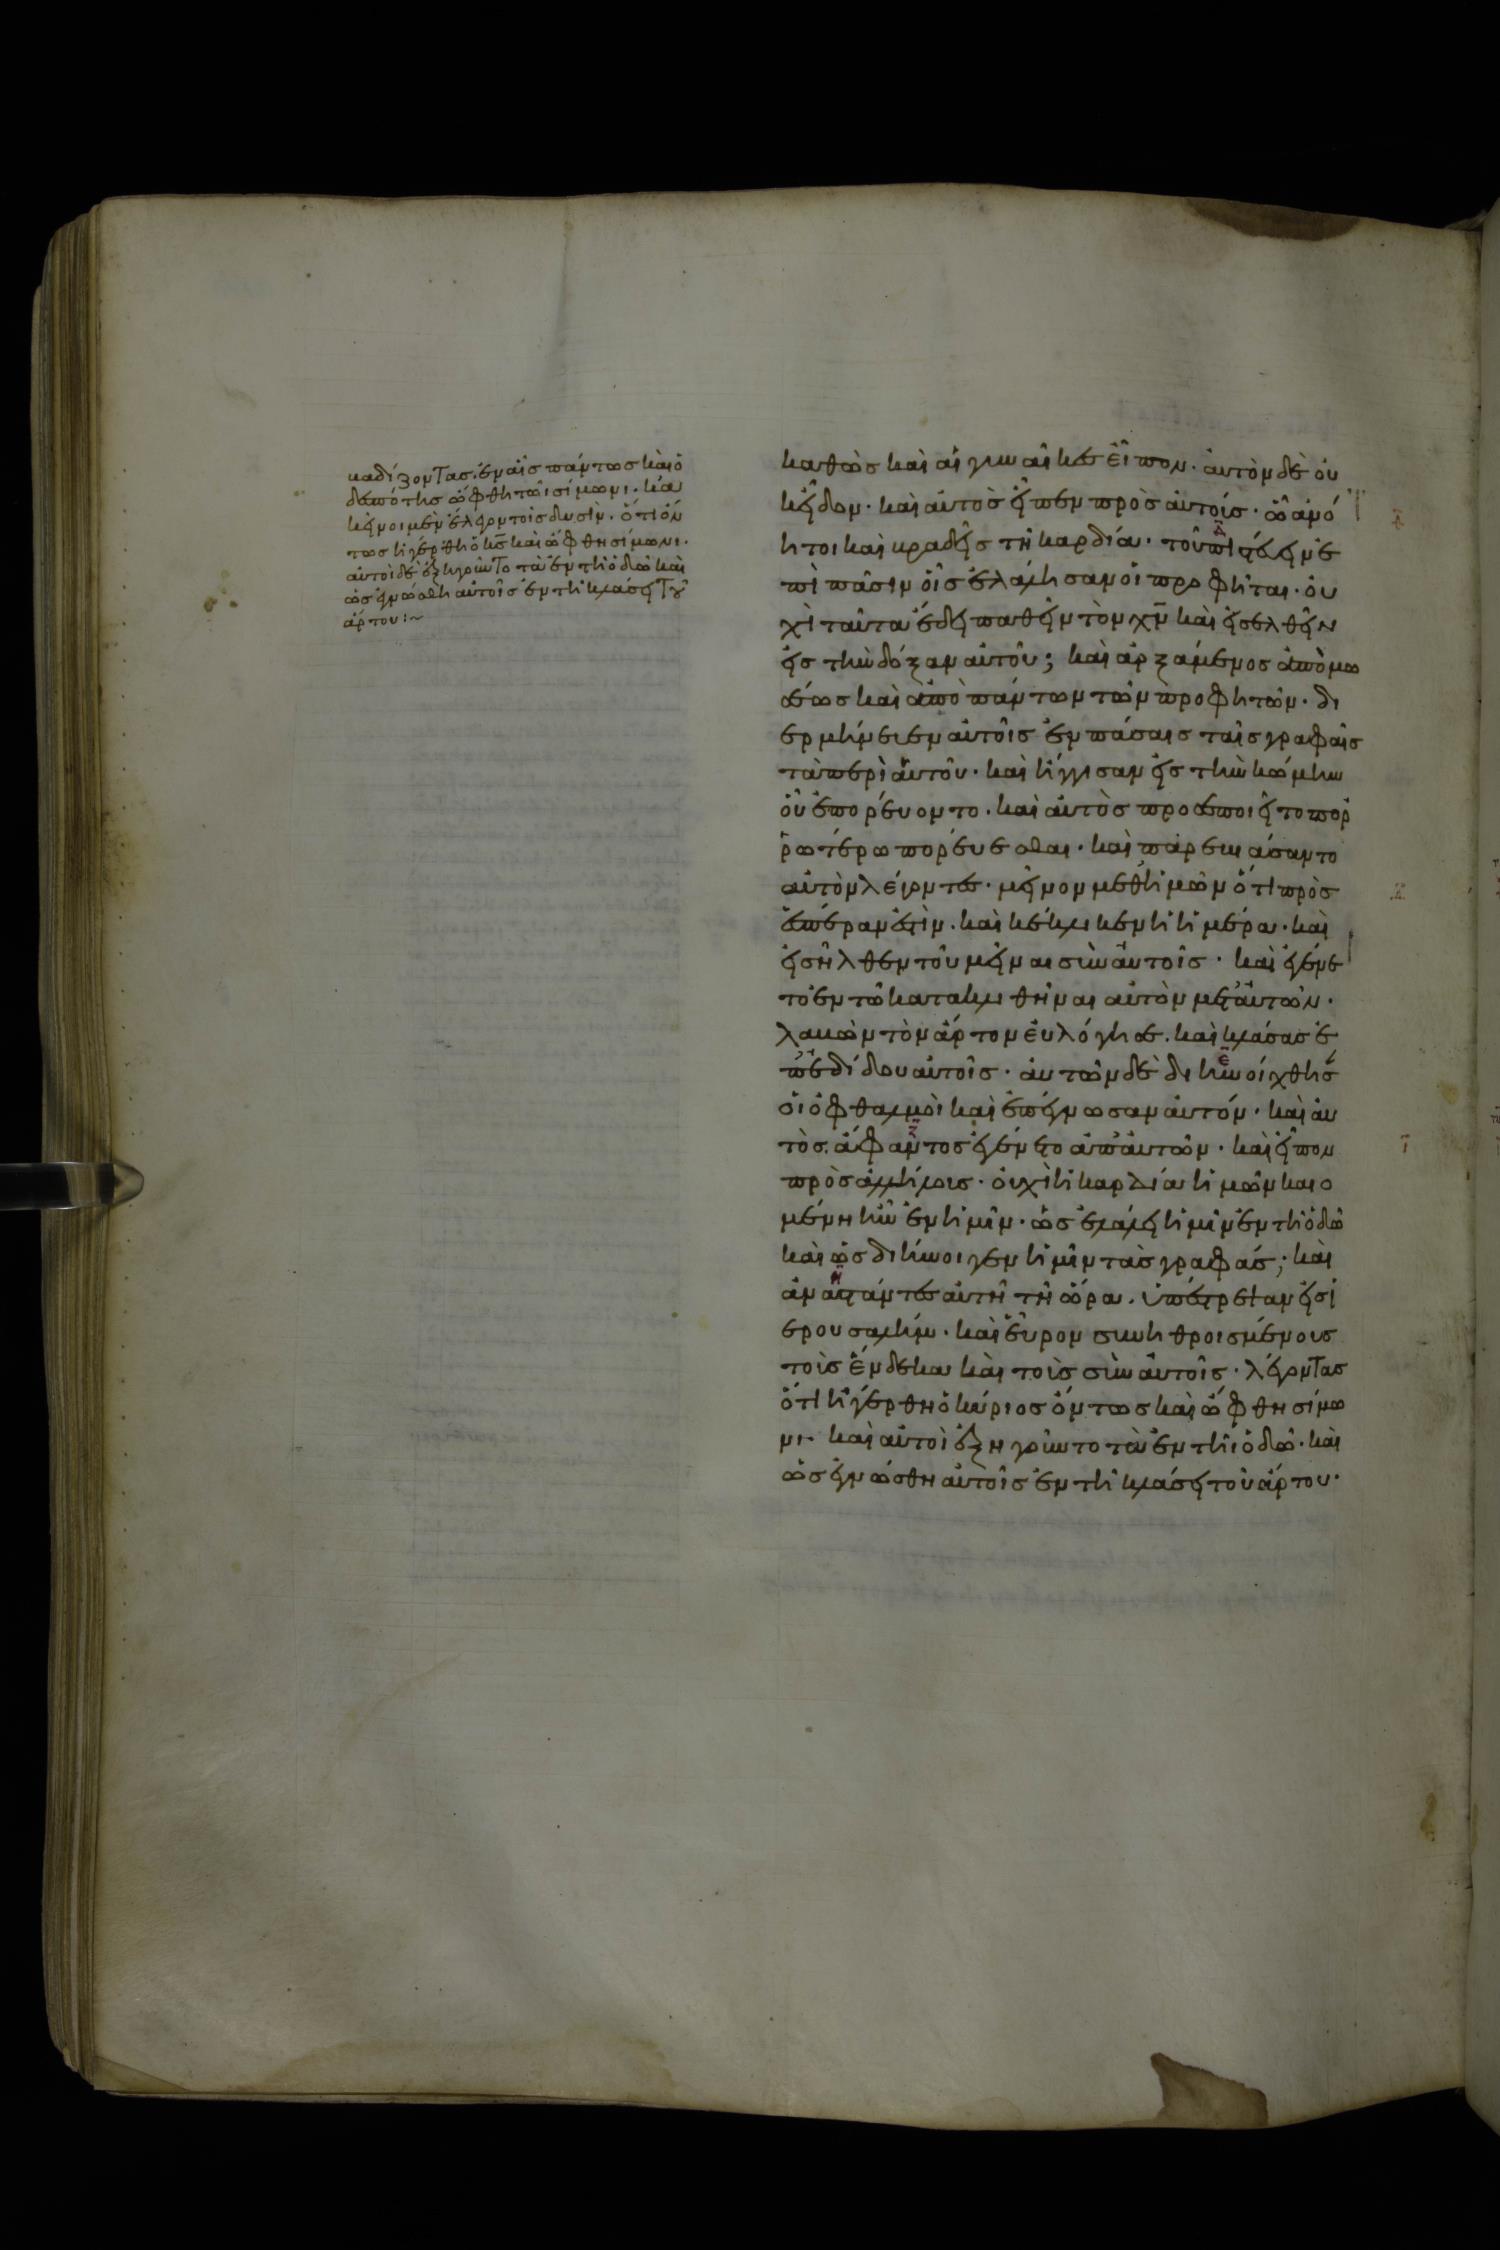 καθίζοντας. ἐν αἷς πάντως καὶ ὁ
δεσπότης ὤφθη τῶι σίμωνι. κα
κεῖνοι μὲν ἔλεγον τοῖς δυσὶν. ὅτι ὄν
τως ἠγέρθη ὁ κ̅ς̅ καὶ ὤφθη σίμωνι.
αὐτοὶ δὲ ἐξηγοῦντο τὰ ἐν τῆ ὁδῶ καὶ
ὡς ἐγνώσθη αὐτοῖς ἐν τῆ κλάσει τοῦ
ἄρτου :~
καθὼς καὶ αἱ γυναῖκες εἶπον. αὐτὸν δὲ οὐ
κ εἶδον· καὶ αὐτὸς εἶπεν πρὸς αὐτοὺς· ὦ ἀνό
ητοι καὶ βραδεῖς τῆ καρδία· τοῦ πιστεύειν ἐ
πὶ πᾶσιν οἷς ἐλάλησαν οἱ προφῆται· οὐ
χὶ ταῦτα ἔδει παθεῖν τὸν χ̅ν̅ καὶ εἰσελθεῖν
εἰς τὴν δόξαν αὐτοῦ; καὶ ἀρξάμενος ἀπὸ μω
σέως καὶ ἀπὸ πάντων τῶν προφητῶν· δι
ερμήνευεν αὐτοῖς ἐν πάσαις ταῖς γραφαῖς
τὰ περὶ αὐτοῦ· καὶ ἤγγισαν εἰς τὴν κώμην
οὗ ἐπορεύοντο. καὶ αὐτὸς προσεποιεῖτο πορ
ρωτέρω πορεύεσθαι· καὶ παρεβιάσαντο
αὐτὸν λέγοντες· μεῖνον μεθ' ἡμῶν ὅτι πρὸς
ἑσπέραν ἐστὶν. καὶ κέκλικεν ἡ ἡμέρα· καὶ
εἰσῆλθεν τοῦ μεῖναι σὺν αὐτοῖς· καὶ ἐγένε
το ἐν τῶ κατακλιθῆναι αὐτὸν μετ' αὐτῶν·
λαβὼν τὸν ἄρτον εὐλόγησε. καὶ κλάσας ἐ
πεδίδου αὐτοῖς· αὐτῶν δὲ διηνοίχθησ
οἱ ὀφθαλμοὶ καὶ ἐπέγνωσαν αὐτόν· καὶ αὐ
τὸς ἄφαντος ἐγένετο ἀπ' αὐτῶν· καὶ εἶπον
πρὸς ἀλλήλους· οὐχὶ ἡ καρδία ἡμῶν καιο
μένη ἦν ἐν ἡμῖν· ὡς ἐλάλει ἡμῖν ἐν τῆ ὁδῶ
καὶ ὡς διήνοιγεν ἡμῖν τὰς γραφάς; καὶ
ἀναστάντες αὐτῆ τῆ ὥρα. ὑπέστρεψαν εἰς ἱ
ερουσαλήμ· καὶ εὗρον συνηθροισμένους
τοὺς ἕνδεκα καὶ τοὺς σὺν αὐτοῖς· λέγοντας
ὅτι ἠγέρθη ὁ κύριος ὄντως καὶ ὤφθη σίμω
νι· καὶ αὐτοὶ ἐξηγοῦντο τὰ ἐν τῆ ὁδῶ· καὶ
ὡς ἐγνώσθη αὐτοῖς ἐν τῆ κλάσει τοῦ ἄρτου·